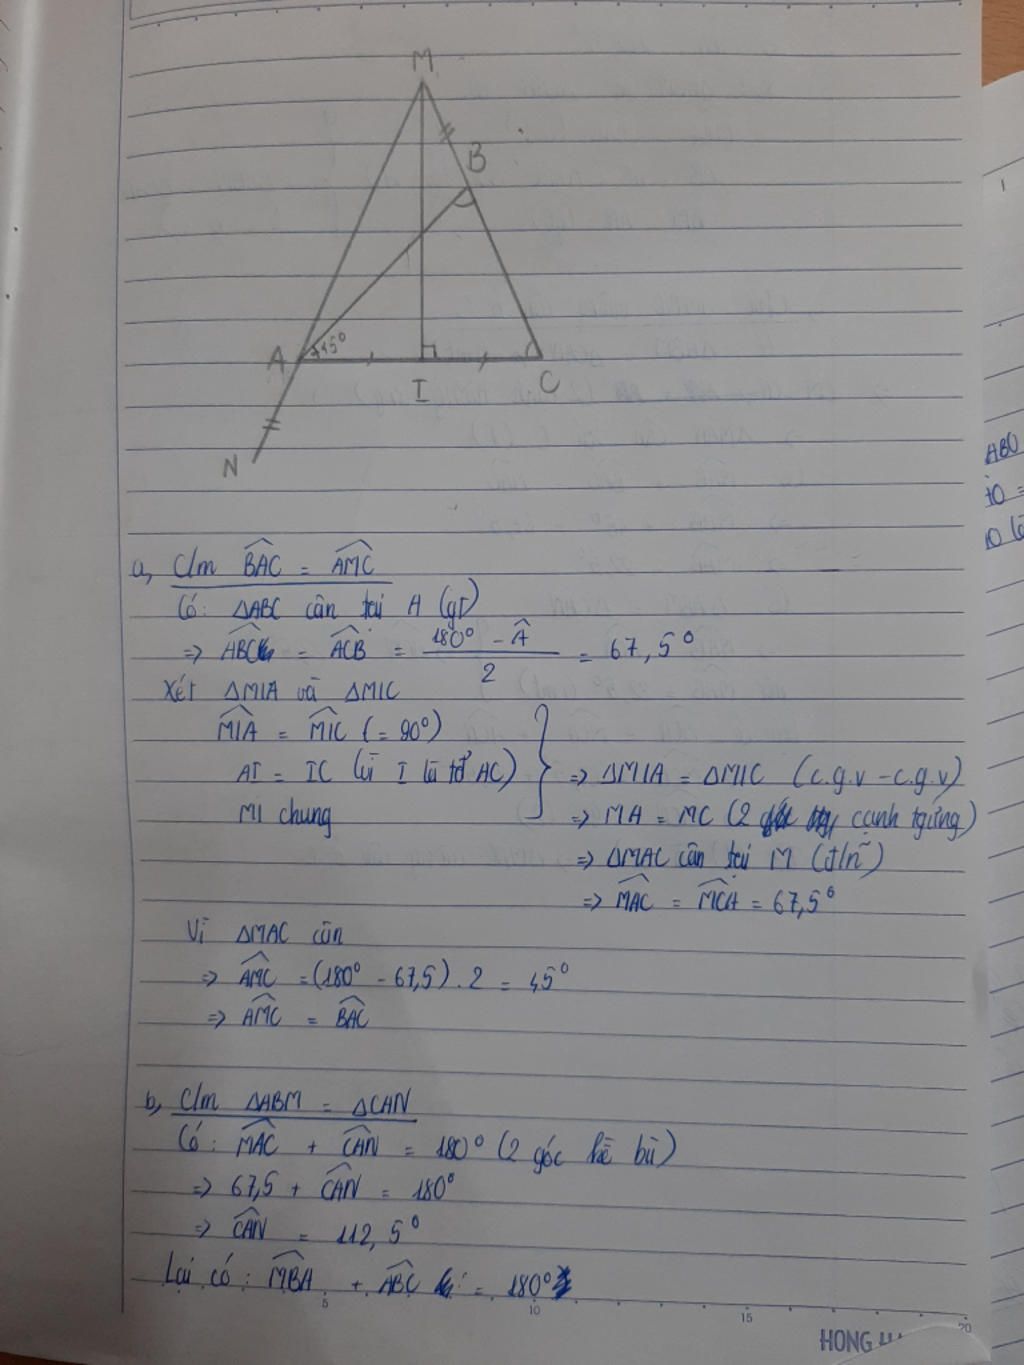 M
B
A 45°
I
C
N
a, C/m BAC = AMC
Có: ΔABC cân tại A (gt)
=> ABC = ACB = (180° - A)/2 = 67,5°
Xét ΔMIA và ΔMIC
MIA = MIC (= 90°)
AI = IC (vì I là tđ AC) } => ΔMIA = ΔMIC (c.g.v - c.g.v)
MI chung => MA = MC (2 cạnh tg ứng)
=> ΔMAC cân tại M (đ/n~)
=> MAC = MCA = 67,5°
Vì ΔMAC cân
=> AMC = (180° - 67,5) . 2 = 45°
=> AMC = BAC
b, C/m ΔABM = ΔCAN
Có: MAC + CAN = 180° (2 góc kề bù)
=> 67,5 + CAN = 180°
=> CAN = 112,5°
Lại có: MBA + ABC = 180°
5 10 15 20
HONG H
ABC